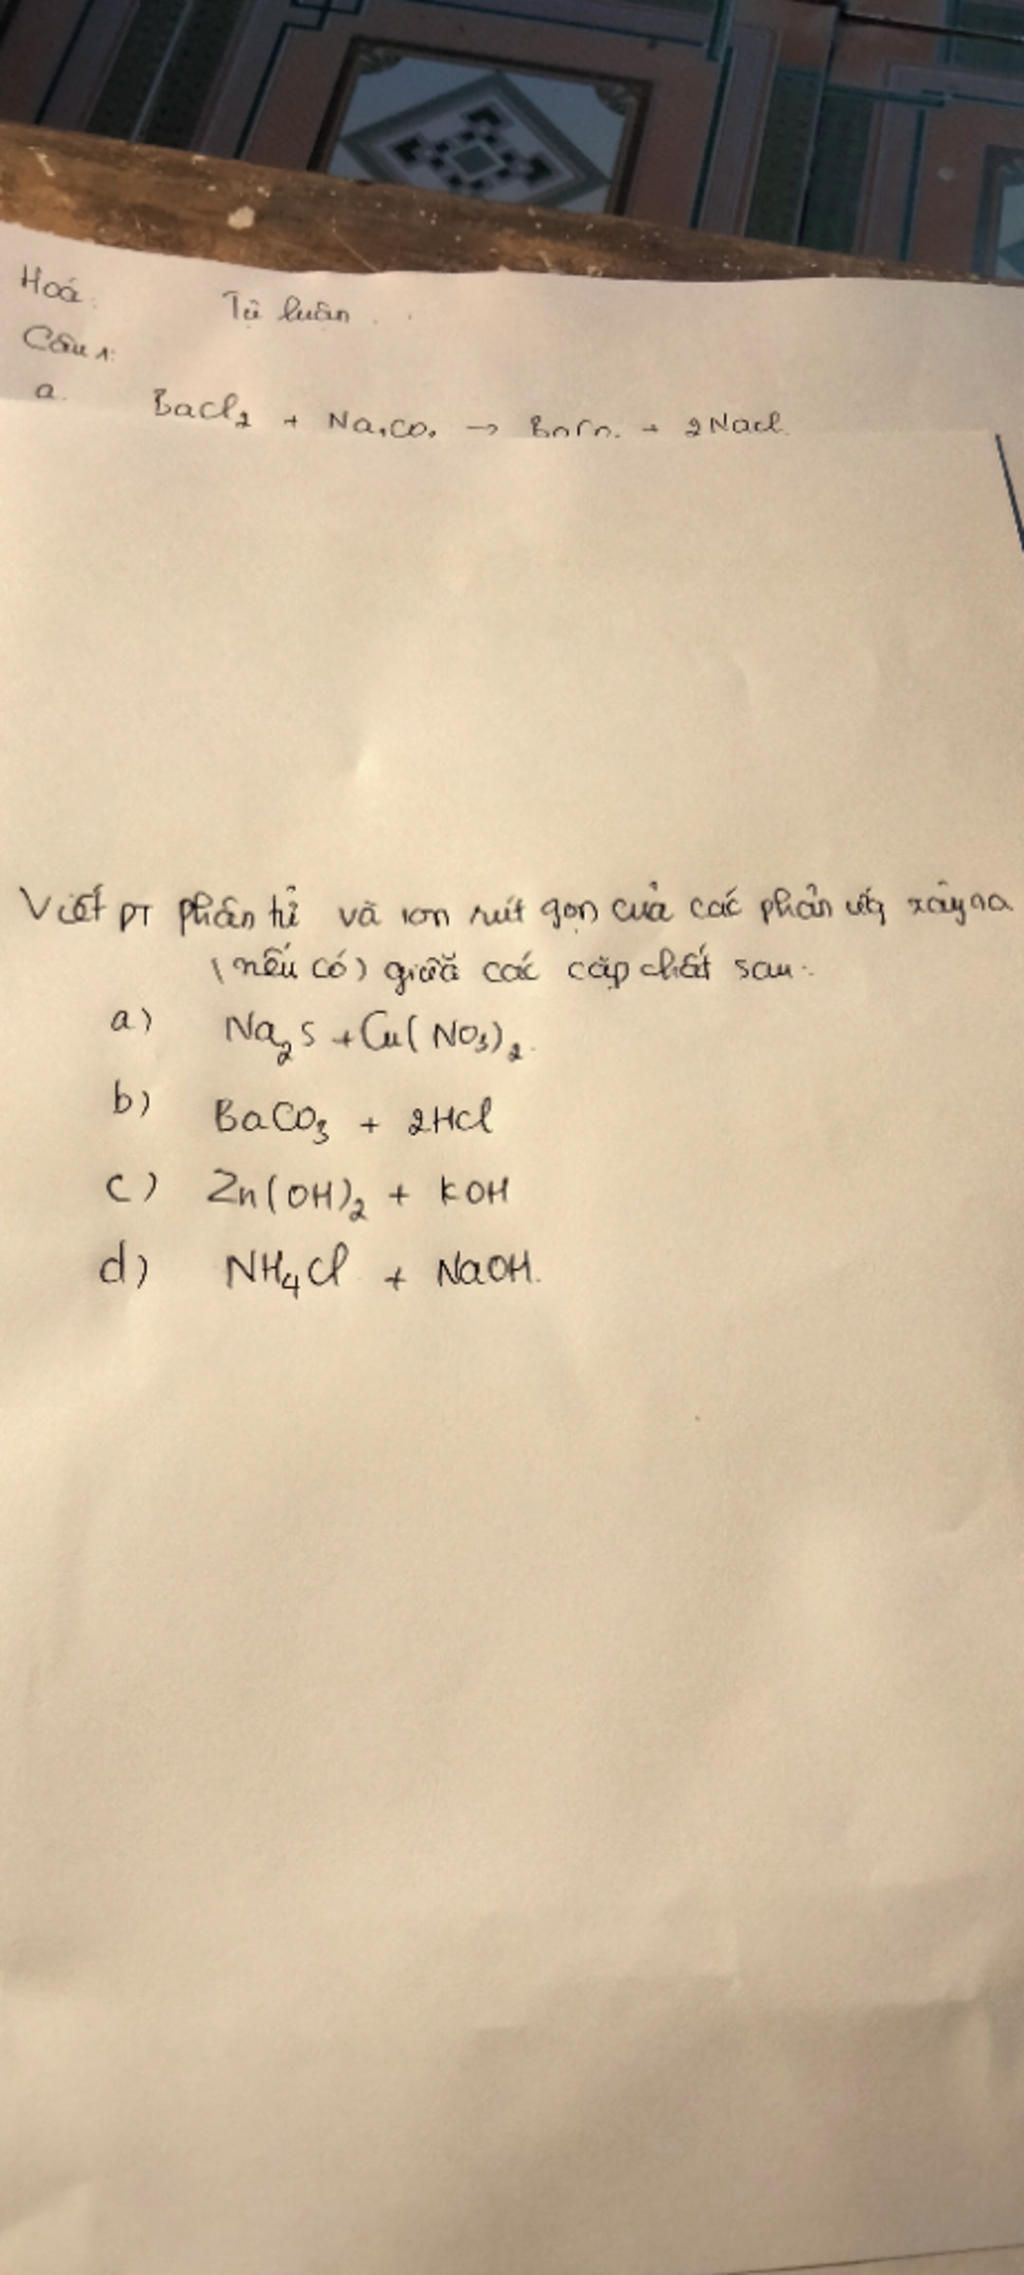 Hoá: Tự luận
Câu 1:
a. BaCl2 + Na2CO3 → + 2NaCl
Viết PT phân tử và ion rút gọn của các phản ứng xảy ra
(nếu có) giữa các cặp chất sau:
a) Na2S + Cu(NO3)2.
b) BaCO3 + 2HCl
c) Zn(OH)2 + KOH
d) NH4Cl + NaOH.